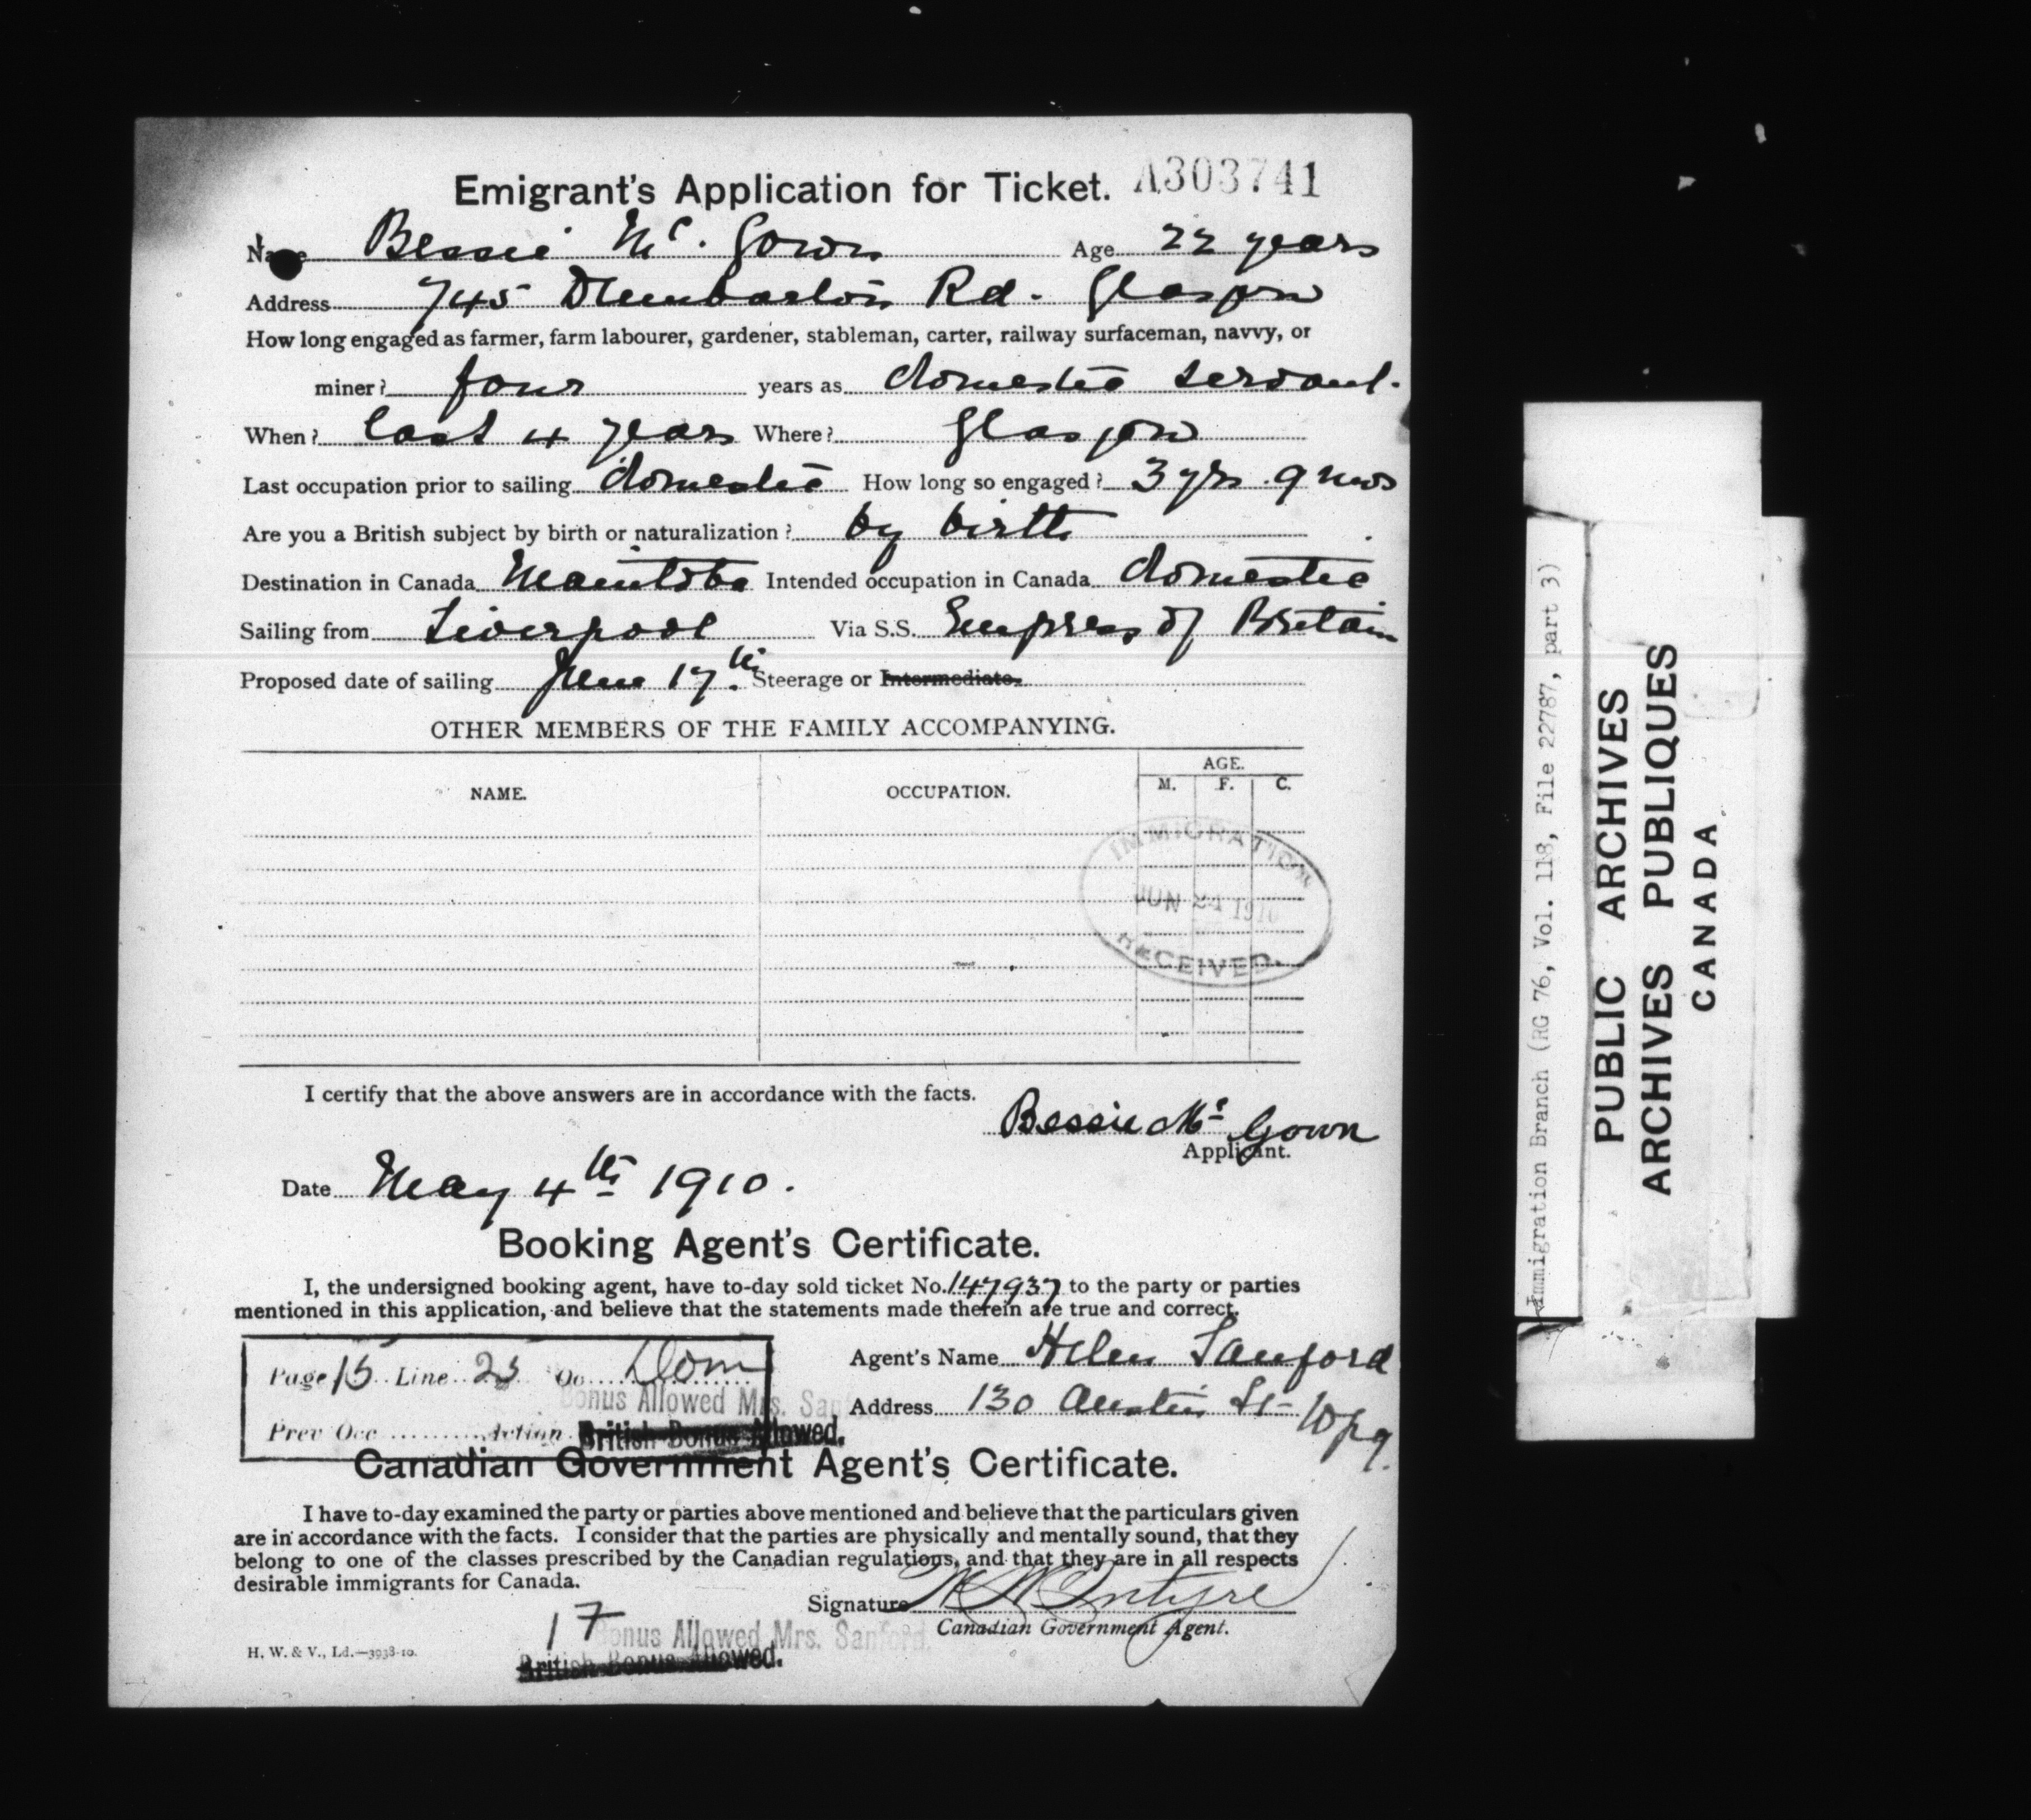 Emigrant's Application for Ticket. A303741
Name Bessie Mc. Gown Age 22 years
Address 745 Dumbarton Rd. Glasgow
How long engaged as farmer, farm labourer, gardener, stableman, carter, railway surfaceman, navvy, or
miner? four years as domestic servant.
When? last 4 years Where? Glasgow
Last occupation prior to sailing domestic How long so engaged? 3 yrs. 9 mos
Are you a British subject by birth or naturalization? by birth
Destination in Canada Manitoba Intended occupation in Canada domestic
Sailing from Liverpool Via S.S. Empress of Britain
Proposed date of sailing June 17th. Steerage or Intermediate.
OTHER MEMBERS OF THE FAMILY ACCOMPANYING.
NAME. OCCUPATION. AGE.
M. F. C.
IMMIGRATION
JUN 24 1910
RECEIVED.
I certify that the above answers are in accordance with the facts.
Bessie Mc Gown
Applicant.
Date May 4th 1910.
Booking Agent's Certificate.
I, the undersigned booking agent, have to-day sold ticket No. 147937 to the party or parties
mentioned in this application, and believe that the statements made therein are true and correct.
Agent's Name Helen Sanford
Address 130 Austin St- Wpg.
Page 15 Line 25 Oc Dom
Bonus Allowed Mrs. Sanford.
Prev Occ Action British Bonus Allowed.
Canadian Government Agent's Certificate.
I have to-day examined the party or parties above mentioned and believe that the particulars given
are in accordance with the facts. I consider that the parties are physically and mentally sound, that they
belong to one of the classes prescribed by the Canadian regulations, and that they are in all respects
desirable immigrants for Canada.
Signature McIntyre
Canadian Government Agent.
17
Bonus Allowed Mrs. Sanford.
British Bonus Allowed.
H. W. & V., Ld.—3938-10.
Immigration Branch (RG 76, Vol. 118, File 22787, part 3)
PUBLIC ARCHIVES
ARCHIVES PUBLIQUES
CANADA